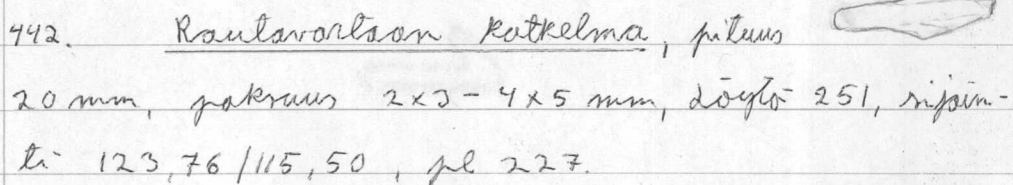 442. Rautavartaan katkelma, pituus
20 mm, paksuus 2x3 - 4x5 mm, löytö 251, sijoin-
ti 123,76/115,50, pl 227.